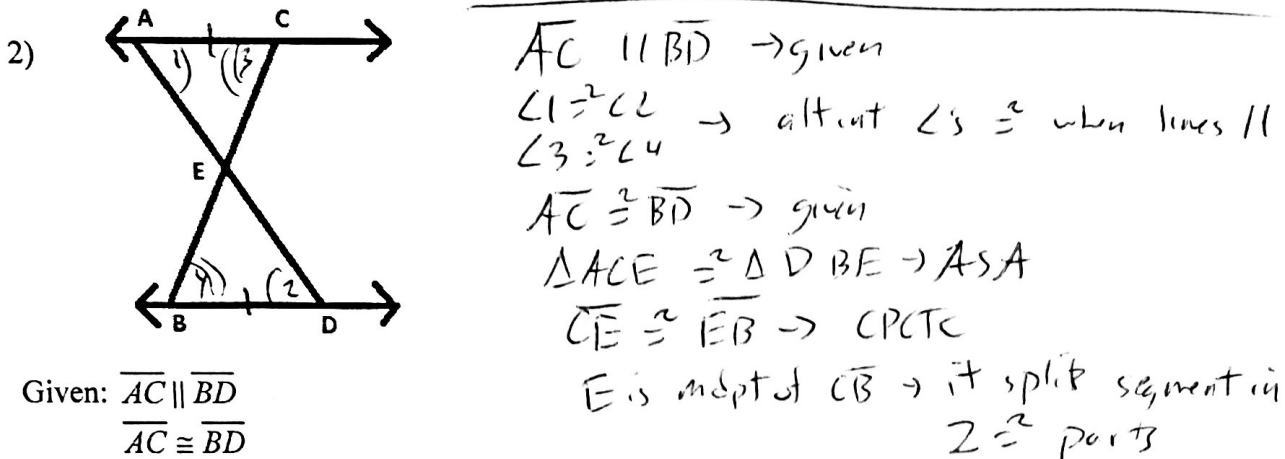 2)
A C
1 3
E
4 2
B D
Given: AC ∥ BD
AC ≅ BD
AC // BD → given
∠1 ≅ ∠2
∠3 ≅ ∠4 → alt int ∠'s ≅ when lines //
AC ≅ BD → given
Δ ACE ≅ Δ DBE → ASA
CE ≅ EB → CPCTC
E is mdpt of CB → it split segment in
2 ≅ parts